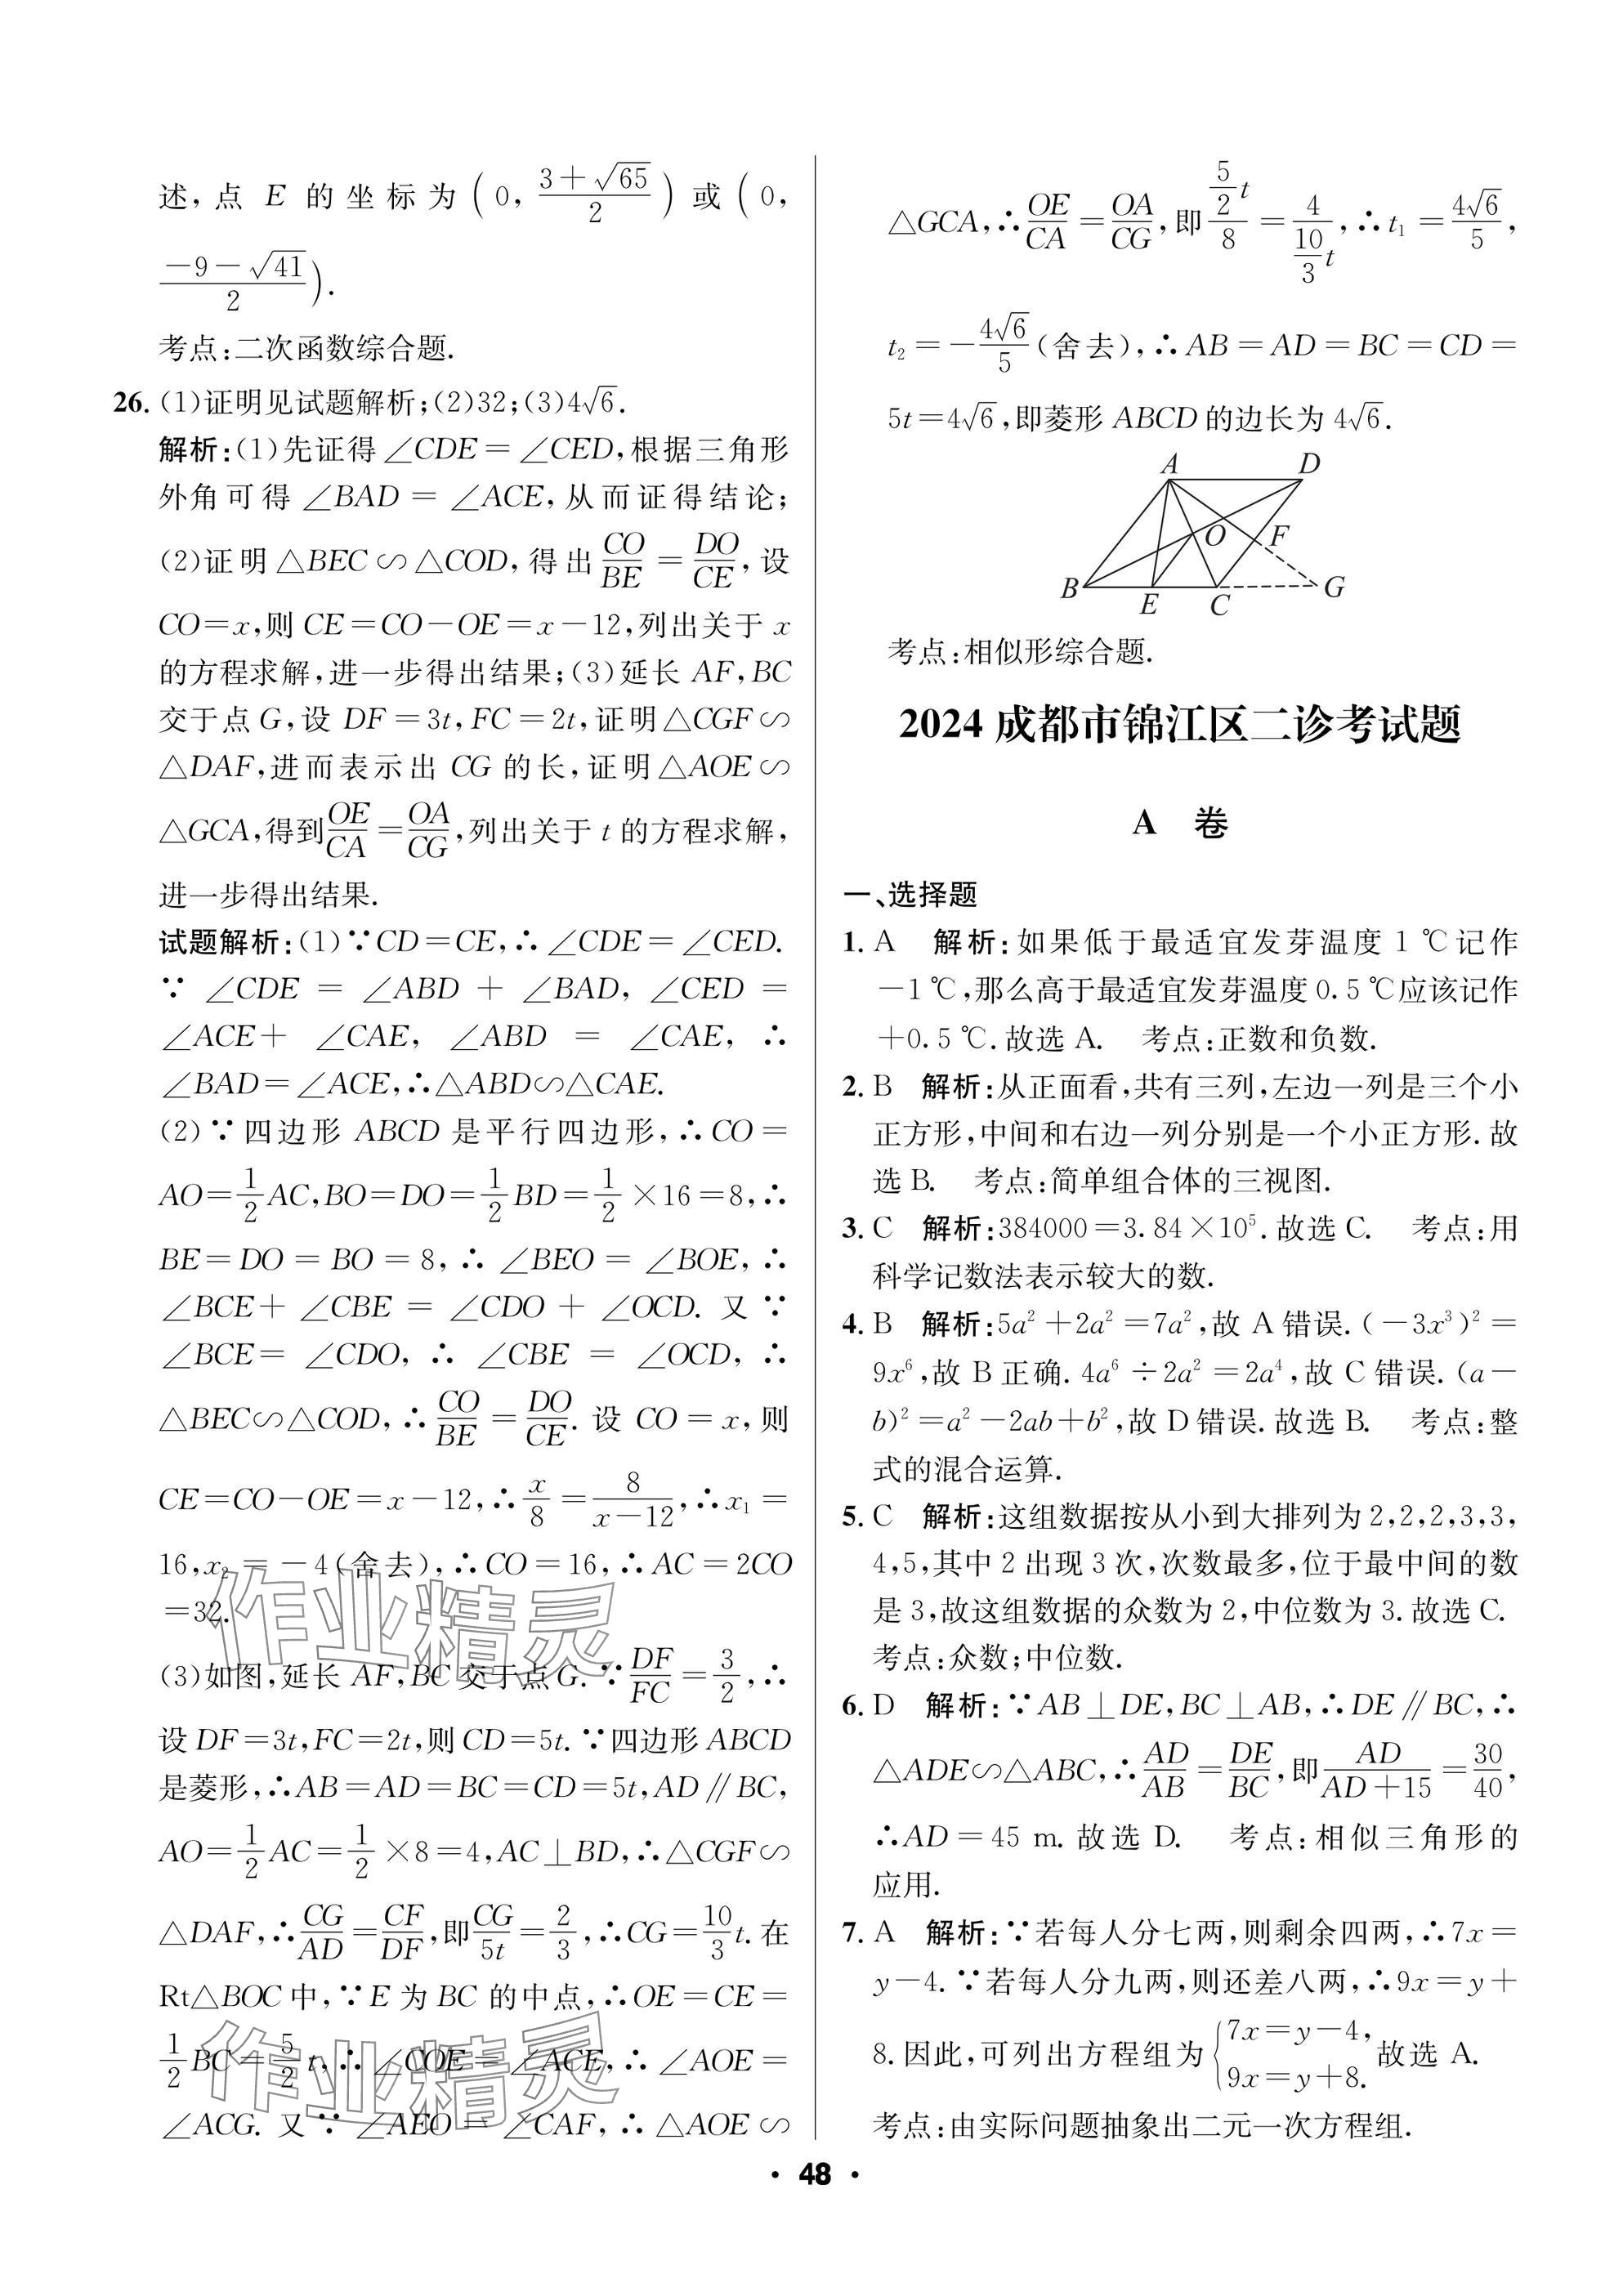 述,点 E 的坐标为(0, (3+√65)/2)或(0,
(-9-√41)/2).
考点:二次函数综合题.
26. (1)证明见试题解析;(2)32;(3)4√6.
解析:(1)先证得∠CDE=∠CED,根据三角形
外角可得∠BAD=∠ACE,从而证得结论;
(2)证明△BEC∽△COD,得出CO/BE=DO/CE,设
CO=x,则 CE=CO-OE=x-12,列出关于 x
的方程求解,进一步得出结果;(3)延长 AF,BC
交于点 G,设 DF=3t,FC=2t,证明△CGF∽
△DAF,进而表示出 CG 的长,证明△AOE∽
△GCA,得到OE/CA=OA/CG,列出关于 t 的方程求解,
进一步得出结果.
试题解析:(1)∵CD=CE,∴∠CDE=∠CED.
∵∠CDE=∠ABD+∠BAD,∠CED=
∠ACE+∠CAE,∠ABD=∠CAE,∴
∠BAD=∠ACE,∴△ABD∽△CAE.
(2)∵四边形 ABCD 是平行四边形,∴CO=
AO=1/2 AC,BO=DO=1/2 BD=1/2×16=8,∴
BE=DO=BO=8,∴∠BEO=∠BOE,∴
∠BCE+∠CBE=∠CDO+∠OCD. 又∵
∠BCE=∠CDO,∴∠CBE=∠OCD,∴
△BEC∽△COD,∴CO/BE=DO/CE. 设 CO=x,则
CE=CO-OE=x-12,∴x/8=8/(x-12),∴x₁=
16,x₂=-4(舍去),∴CO=16,∴AC=2CO
=32.
(3)如图,延长 AF,BC 交于点 G. ∵DF/FC=3/2,∴
设 DF=3t,FC=2t,则 CD=5t. ∵四边形 ABCD
是菱形,∴AB=AD=BC=CD=5t,AD∥BC,
AO=1/2 AC=1/2×8=4,AC⊥BD,∴△CGF∽
△DAF,∴CG/AD=CF/DF,即CG/5t=2/3,∴CG=10/3 t. 在
Rt△BOC 中,∵E 为 BC 的中点,∴OE=CE=
1/2 BC=5/2 t,∴∠COE=∠ACE,∴∠AOE=
∠ACG. 又∵∠AEO=∠CAF,∴△AOE∽
作业精灵
作业精灵
△GCA,∴OE/CA=OA/CG,即(5/2 t)/8=4/(10/3 t),∴t₁=4√6/5,
t₂=-4√6/5(舍去),∴AB=AD=BC=CD=
5t=4√6,即菱形 ABCD 的边长为 4√6.
A D
O F
B E C G
考点:相似形综合题.
2024 成都市锦江区二诊考试题
A 卷
一、选择题
1. A 解析:如果低于最适宜发芽温度 1 ℃记作
-1 ℃,那么高于最适宜发芽温度 0.5 ℃应该记作
+0.5 ℃.故选 A. 考点:正数和负数.
2. B 解析:从正面看,共有三列,左边一列是三个小
正方形,中间和右边一列分别是一个小正方形.故
选 B. 考点:简单组合体的三视图.
3. C 解析:384000=3.84×10⁵.故选 C. 考点:用
科学记数法表示较大的数.
4. B 解析:5a²+2a²=7a²,故 A 错误.(-3x³)²=
9x⁶,故 B 正确. 4a⁶÷2a²=2a⁴,故 C 错误.(a-
b)²=a²-2ab+b²,故 D 错误.故选 B. 考点:整
式的混合运算.
5. C 解析:这组数据按从小到大排列为 2,2,2,3,3,
4,5,其中 2 出现 3 次,次数最多,位于最中间的数
是 3,故这组数据的众数为 2,中位数为 3.故选 C.
考点:众数;中位数.
6. D 解析:∵AB⊥DE,BC⊥AB,∴DE∥BC,∴
△ADE∽△ABC,∴AD/AB=DE/BC,即AD/(AD+15)=30/40,
∴AD=45 m. 故选 D. 考点:相似三角形的
应用.
7. A 解析:∵若每人分七两,则剩余四两,∴7x=
y-4. ∵若每人分九两,则还差八两,∴9x=y+
8.因此,可列出方程组为{7x=y-4, 9x=y+8. 故选 A.
考点:由实际问题抽象出二元一次方程组.
· 48 ·